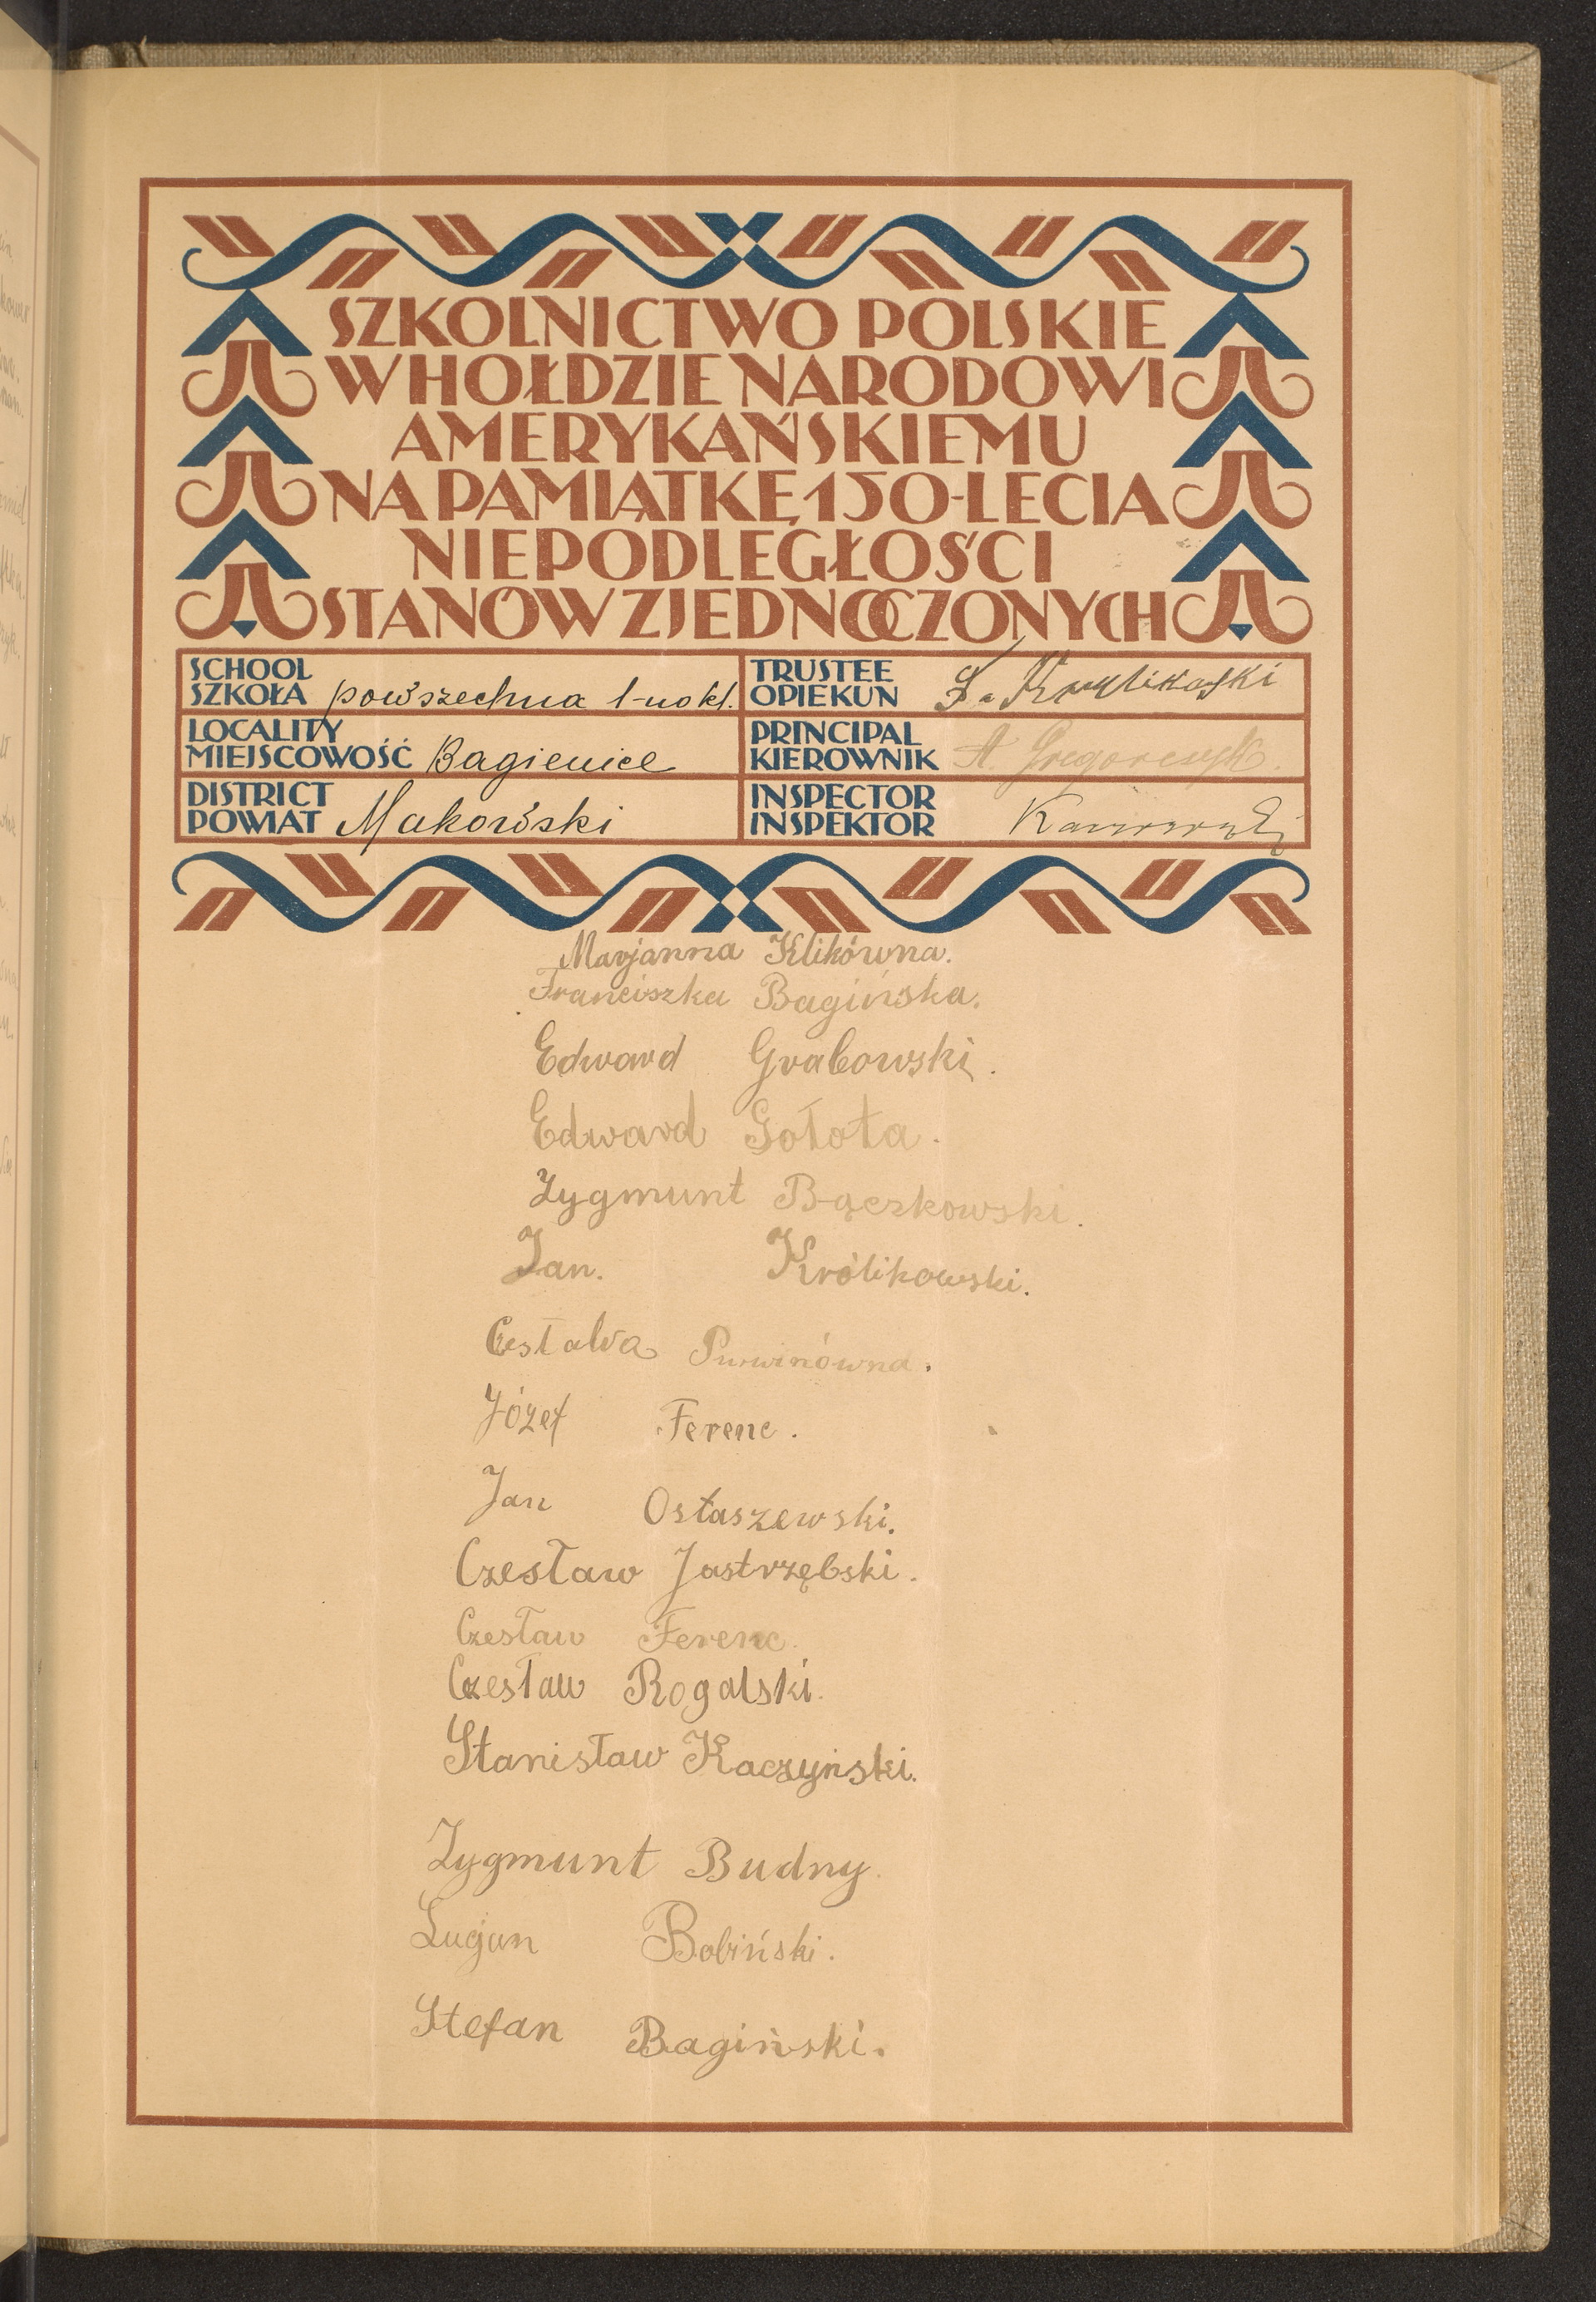 SZKOLNICTWO POLSKIE
W HOŁDZIE NARODOWI
AMERYKAŃSKIEMU
NA PAMIĄTKĘ 150-LECIA
NIEPODLEGŁOŚCI
STANÓW ZJEDNOCZONYCH
SCHOOL
SZKOŁA powszechna 1-no kl.
TRUSTEE
OPIEKUN
LOCALITY
MIEJSCOWOŚĆ Bagienice
PRINCIPAL
KIEROWNIK A. Gregorczyk.
DISTRICT
POWIAT Makowski
INSPECTOR
INSPEKTOR
Marjanna Klikówna.
Franciszka Bagińska.
Edward Grabowski.
Edward Gołota.
Zygmunt Bączkowski.
Jan. Królikowski.
Józef Ferenc.
Jan Ostaszewski.
Czesław Jastrzębski.
Czesław Ferenc.
Czesław Rogalski.
Stanisław Kaczyński.
Zygmunt Budny.
Lucjan Bobiński.
Stefan Bagiński.